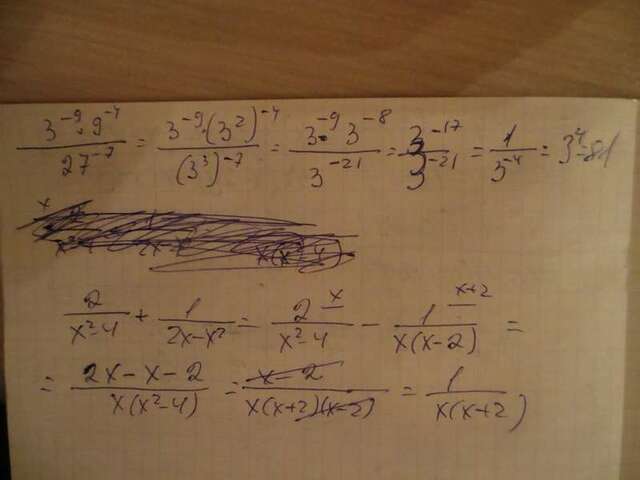 3⁻⁹·9⁻⁴/27⁻⁷ = 3⁻⁹·(3²)⁻⁴/(3³)⁻⁷ = 3⁻⁹·3⁻⁸/3⁻²¹ = 3⁻¹⁷/3⁻²¹ = 1/3⁻⁴ = 3⁴=81
2/(x²-4) + 1/(2x-x²) = 2/(x²-4) x - 1/(x(x-2)) x+2 =
= (2x-x-2)/(x(x²-4)) = (x-2)/(x(x+2)(x-2)) = 1/(x(x+2))